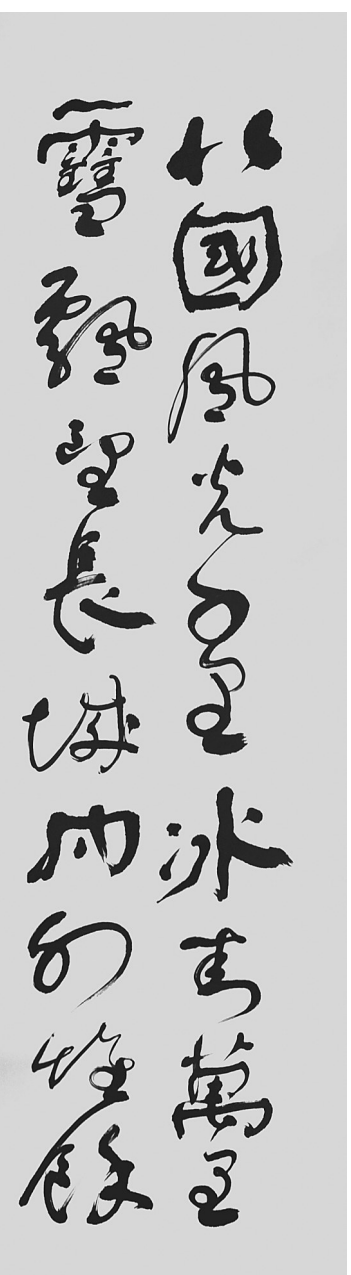 北國風光千里冰封萬里
雪飄望長城內外惟餘